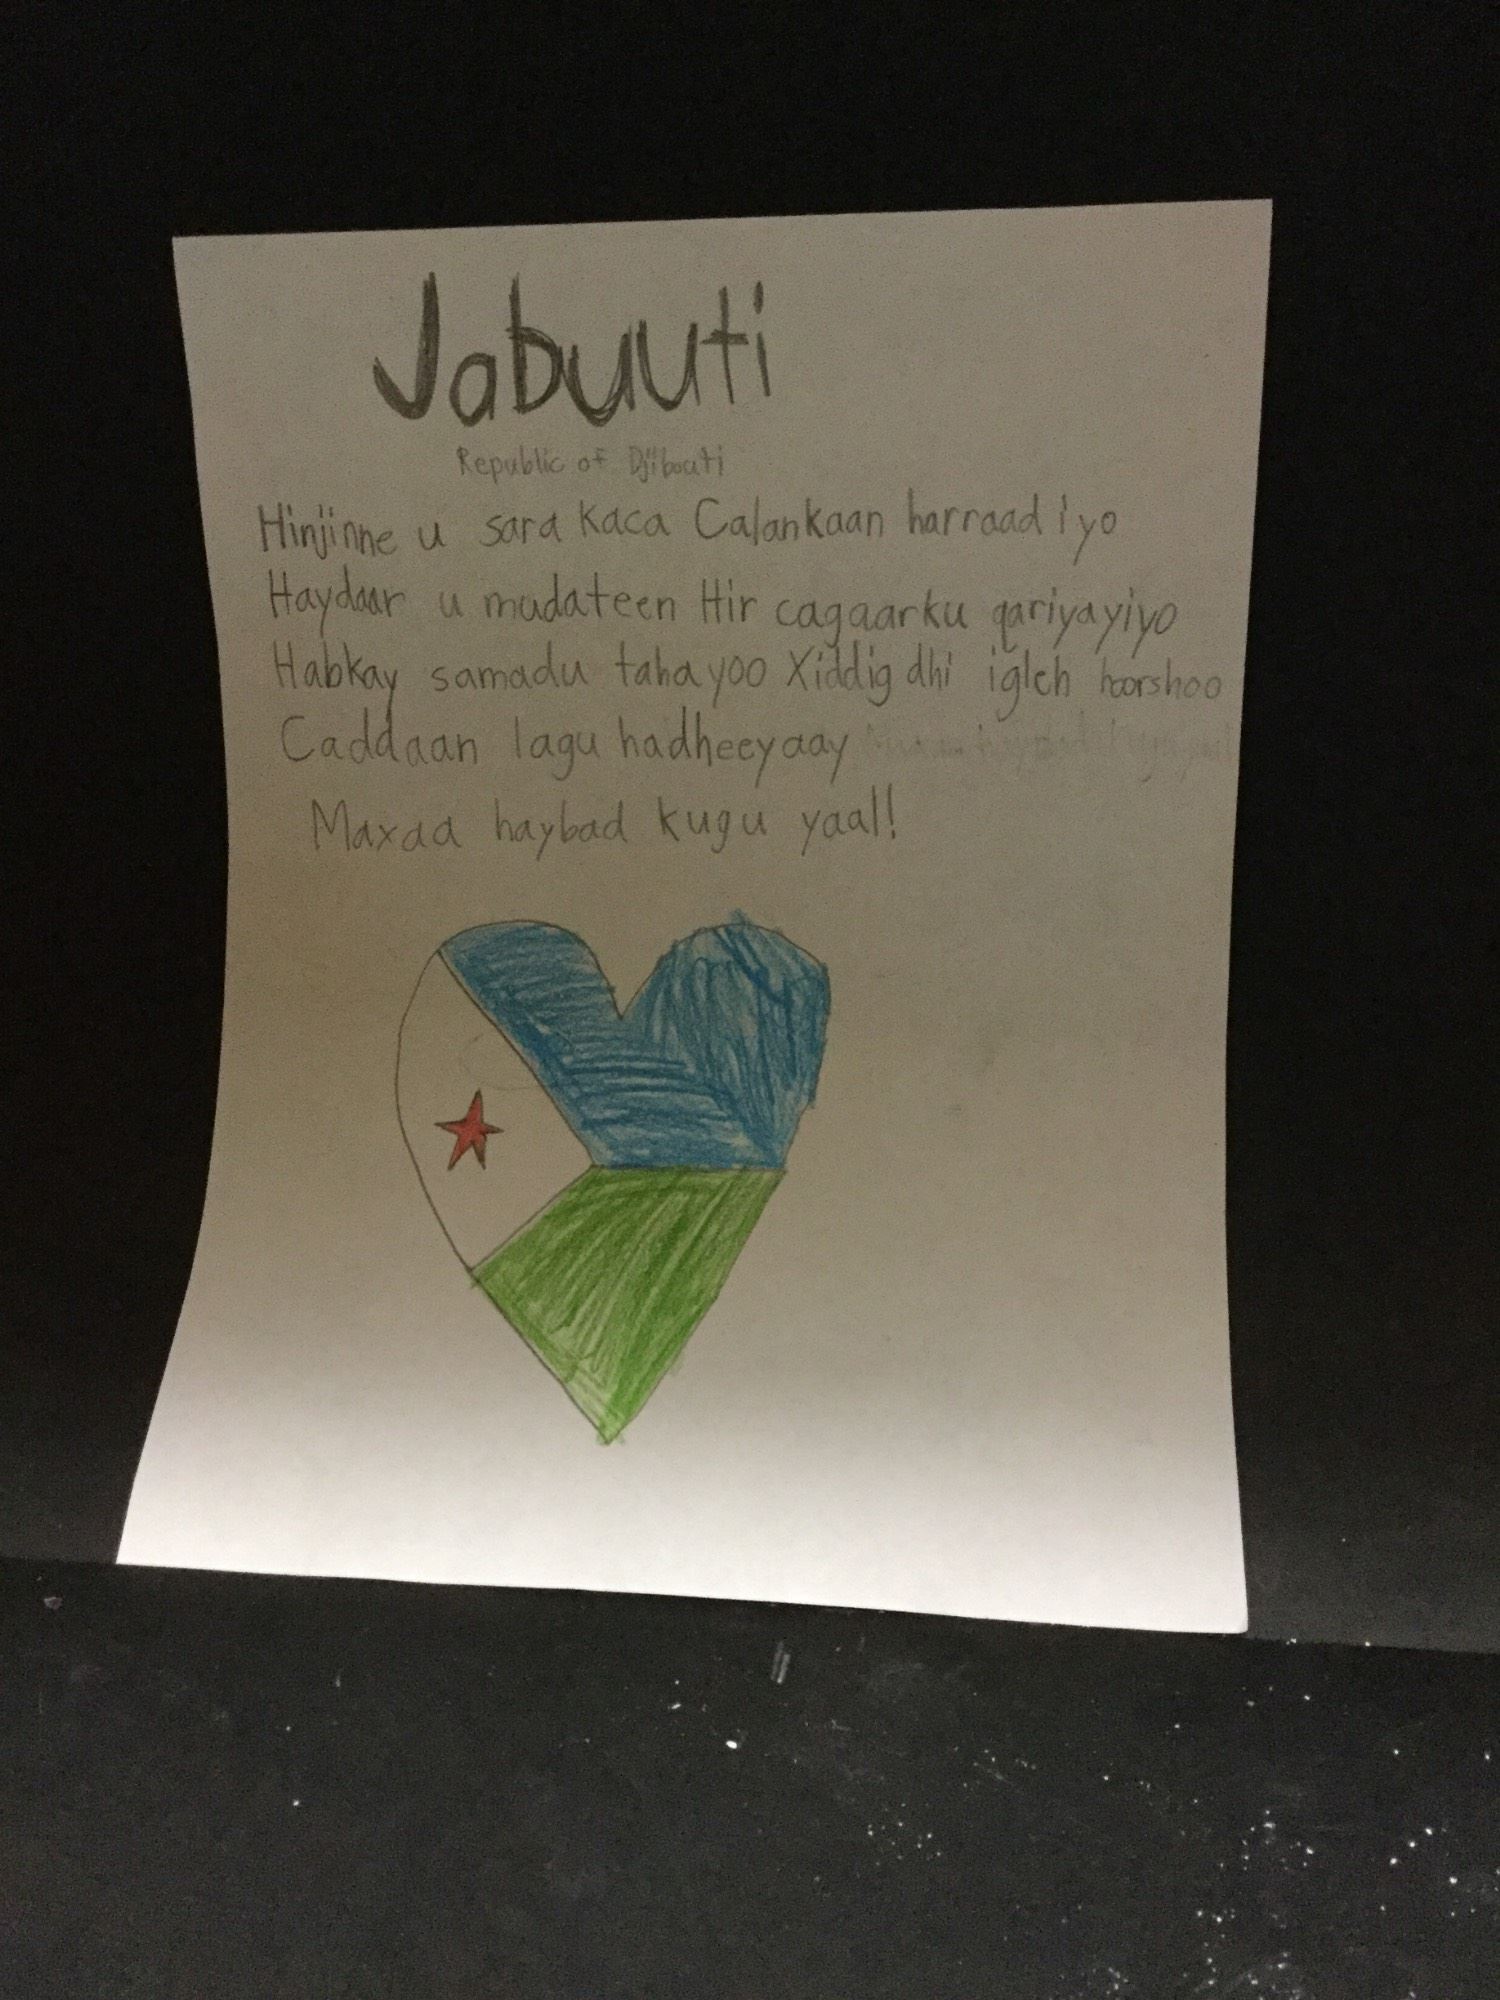 Jabuuti
Republic of Djibouti
Hinjinne u sara kaca Calankaan harraad iyo
Haydaar u mudateen Hir cagaarku qariyayiyo
Habkay samadu tahayoo Xiddig dhi igleh hoorshoo
Caddaan lagu hadheeyaay
Maxaa haybad kugu yaal!